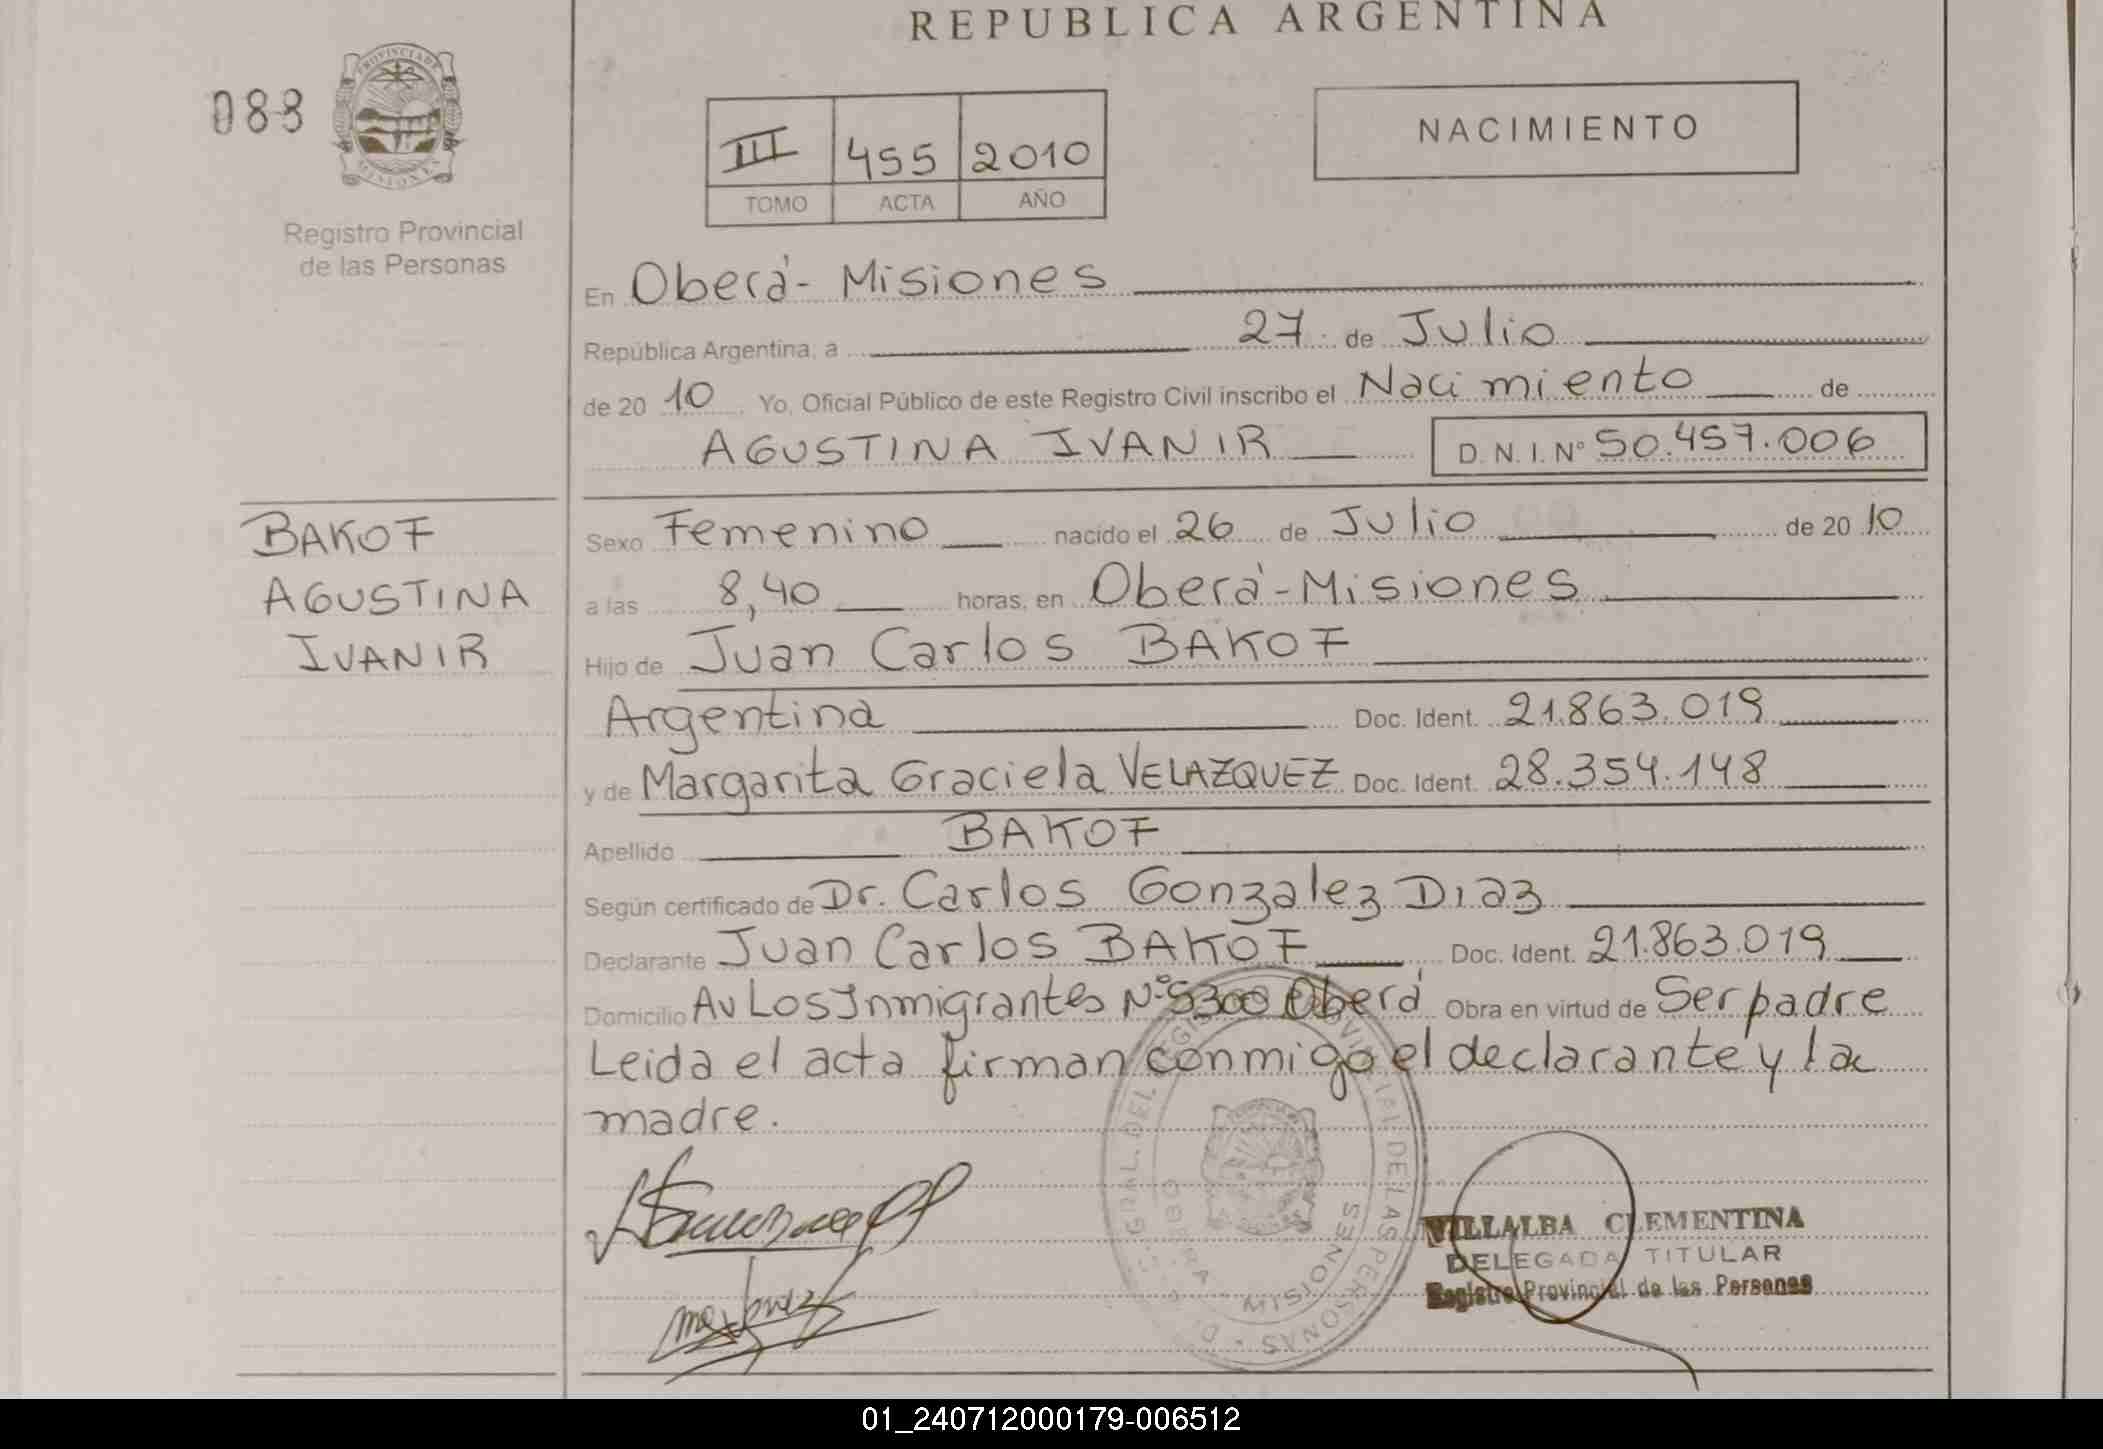 REPUBLICA ARGENTINA
088
PROVINCIA DE
MISIONES
Registro Provincial
de las Personas
III 455 2010
TOMO ACTA AÑO
NACIMIENTO
En Oberá - Misiones
República Argentina, a 27 de Julio
de 20 10 Yo, Oficial Público de este Registro Civil inscribo el Nacimiento de
AGUSTINA IVANIR D.N.I. Nº 50.457.006
BAKOF
AGUSTINA
IVANIR
Sexo Femenino nacido el 26 de Julio de 20 10
a las 8,40 horas, en Oberá - Misiones
Hijo de Juan Carlos BAKOF
Argentina Doc. Ident. 21.863.019
y de Margarita Graciela VELAZQUEZ Doc. Ident. 28.354.148
Apellido BAKOF
Según certificado de Dr. Carlos Gonzalez Diaz
Declarante Juan Carlos BAKOF Doc. Ident. 21.863.019
Domicilio Av Los Inmigrantes Nº 5300 Oberá Obra en virtud de Ser padre
Leida el acta firman conmigo el declarante y la
madre.
GRAL. DEL REGISTRO PROVINCIAL DE LAS PERSONAS
OBERA - MISIONES
VILLALBA CLEMENTINA
DELEGADA TITULAR
Registro Provincial de las Personas
01_240712000179-006512